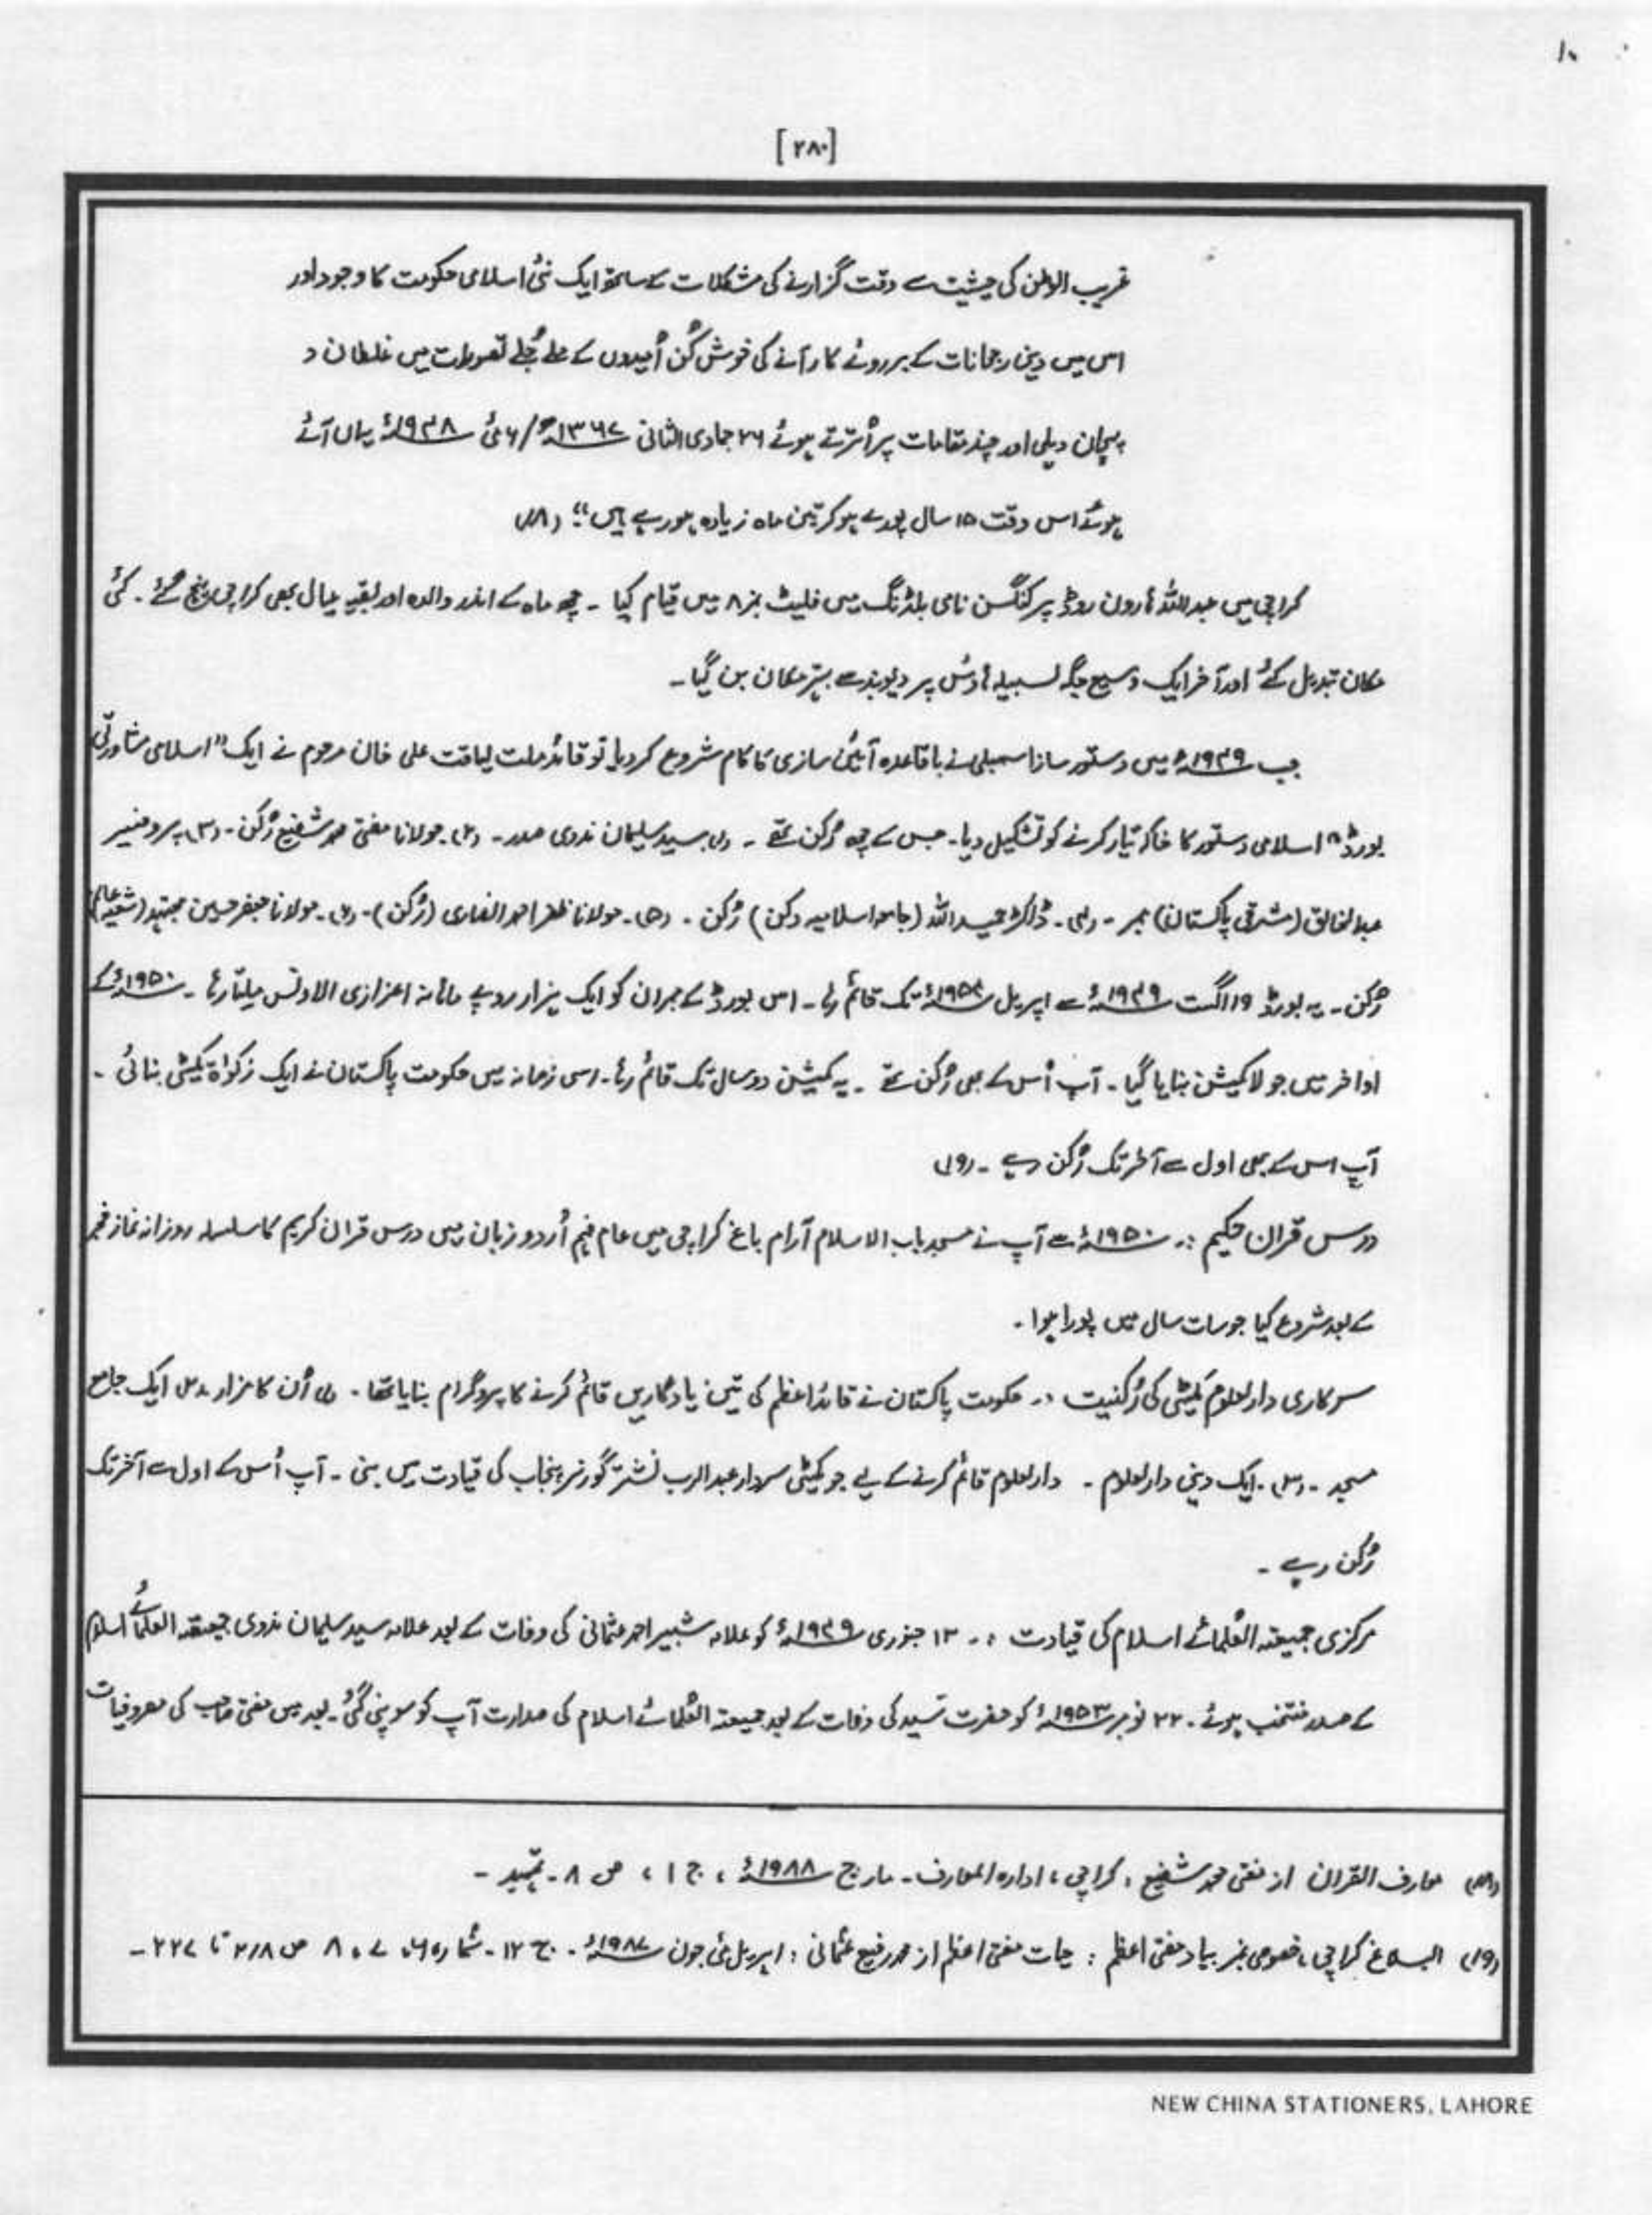 ۱۰
[۲۸۰]
غریب الوطن کی حیثیت سے وقت گزارنے کی مشکلات کے ساتھ ایک نئی اسلامی حکومت کا وجود اور
اس میں دینی رجحانات کے بروئے کار آنے کی خوش کُن اُمیدوں کے ملے جُلے تصورات میں غلطان و
پیچان دہلی اور چند مقامات پر اُترتے ہوئے ۲۶ جمادی الثانی ۱۳۶۷ھ/۶ مئی ۱۹۴۸ء یہاں آئے
ہوئے اس وقت ۱۵ سال پورے ہو کر تین ماہ زیادہ ہو رہے ہیں“ (۱۸)
کراچی میں عبداللہ ہارون روڈ پر کنگسن نامی بلڈنگ میں فلیٹ نمبر ۸ میں قیام کیا ۔ چھ ماہ کے اندر والدہ اور بقیہ عیال بھی کراچی پہنچ گئے ۔ کئی
مکان تبدیل کئے اور آخر ایک وسیع جگہ لسبیلہ ہاؤس پر دیوبند سے بہتر مکان بن گیا ۔
جب ۱۹۴۹ء میں دستور ساز اسمبلی نے باقاعدہ آئین سازی کا کام شروع کر دیا تو قائد ملت لیاقت علی خان مرحوم نے ایک ”اسلامی مشاورتی
بورڈ“ اسلامی دستور کا خاکہ تیار کرنے کو تشکیل دیا ۔ جس کے چھ رُکن تھے ۔ (۱) سید سلیمان ندوی صدر ۔ (۲) مولانا مفتی محمد شفیع رُکن ۔ (۳) پروفیسر
عبدالخالق (مشرقی پاکستان) ممبر ۔ (۴) ۔ ڈاکٹر حمید اللہ (جامعہ اسلامیہ دکن) رُکن ۔ (۵) ۔ مولانا ظفر احمد انصاری (رُکن) ۔ (۶) ۔ مولانا جعفر حسین مجتہد (شیعہ عالم)
رُکن ۔ یہ بورڈ ۱۹ اگست ۱۹۴۹ء سے اپریل ۱۹۵۴ء تک قائم رہا ۔ اس بورڈ کے ممبران کو ایک ہزار روپے ماہانہ اعزازی الاونس ملتا رہا ۔ ۱۹۵۰ء کے
اواخر میں جو لا کمیشن بنایا گیا ۔ آپ اُس کے بھی رُکن تھے ۔ یہ کمیشن دو سال تک قائم رہا ۔ اسی زمانہ میں حکومت پاکستان نے ایک زکوٰۃ کمیٹی بنائی ۔
آپ اس کے بھی اول سے آخر تک رُکن رہے ۔ (۱۹)
درس قرآن حکیم :۔ ۱۹۵۰ء سے آپ نے مسجد باب الاسلام آرام باغ کراچی میں عام فہم اُردو زبان میں درس قرآن کریم کا سلسلہ روزانہ نماز فجر
کے بعد شروع کیا جو سات سال میں پورا ہوا ۔
سرکاری دارالعلوم کمیٹی کی رُکنیت :۔ حکومت پاکستان نے قائد اعظم کی تین یادگاریں قائم کرنے کا پروگرام بنایا تھا ۔ (۱) اُن کا مزار (۲) ایک جامع
مسجد ۔ (۳) ۔ ایک دینی دارالعلوم ۔ دارالعلوم قائم کرنے کے لیے جو کمیٹی سردار عبدالرب نشتر گورنر پنجاب کی قیادت میں بنی ۔ آپ اُس کے اول سے آخر تک
رُکن رہے ۔
مرکزی جمیعتہ العُلمائے اسلام کی قیادت :۔ ۱۳ جنوری ۱۹۴۹ء کو علامہ شبیر احمد عثمانی کی وفات کے بعد علامہ سید سلیمان ندوی جمیعتہ العلمائے اسلام
کے صدر منتخب ہوئے ۔ ۲۲ نومبر ۱۹۵۳ء کو حضرت سید کی وفات کے بعد جمیعتہ العُلمائے اسلام کی صدارت آپ کو سونپی گئی ۔ بعد میں مفتی صاحب کی مصروفیات
(۱۸) معارف القرآن از مفتی محمد شفیع ، کراچی ، ادارہ المعارف ۔ مارچ ۱۹۸۸ء ، ج ۱ ، ص ۸ ۔ تمہید ۔
(۱۹) البلاغ کراچی ، خصوصی نمبر بیاد مفتی اعظم : حیات مفتی اعظم از محمد رفیع عثمانی : اپریل مئی جون ۱۹۸۷ء ۔ ج ۱۲ ۔ شمارہ ۶ ، ۷ ، ۸ ص ۲۱۸ تا ۲۲۷ ۔
NEW CHINA STATIONERS, LAHORE